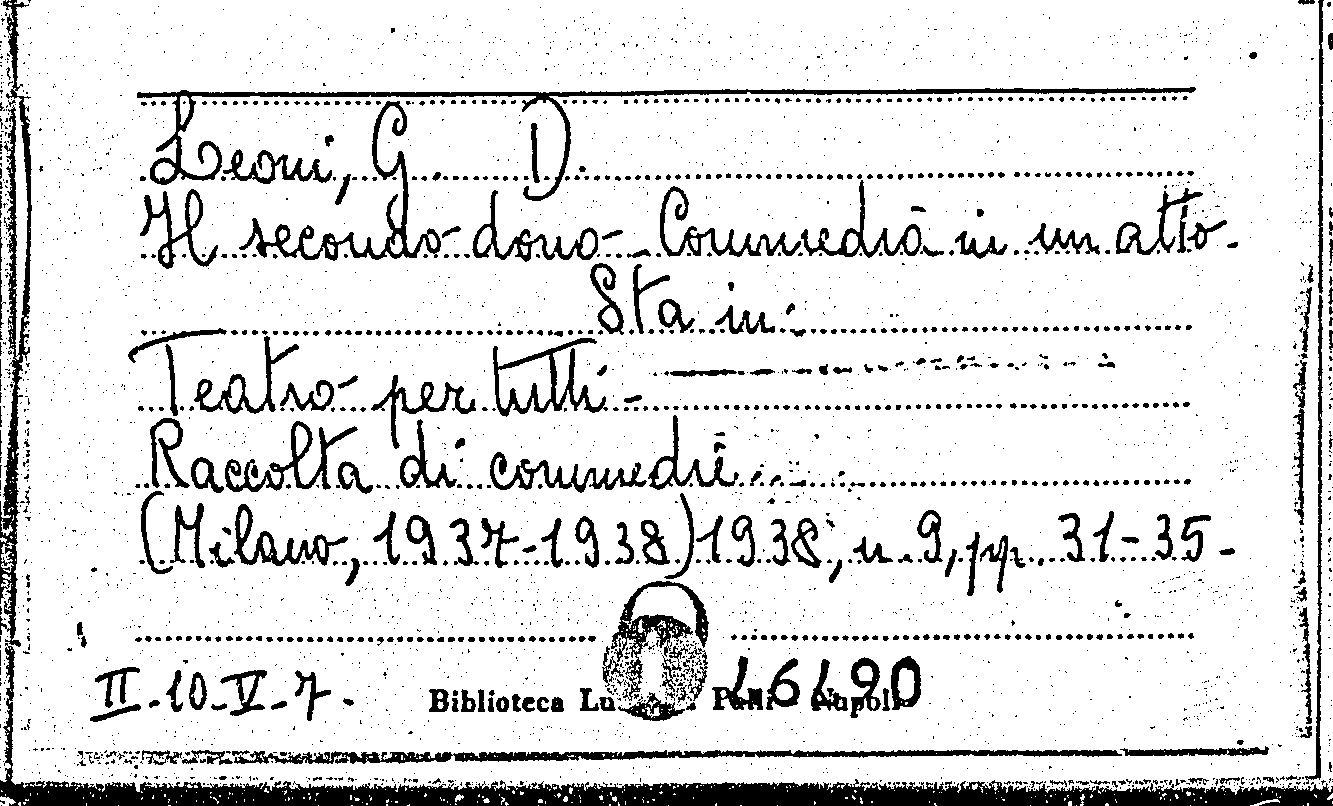 Leoni, G. D.
Il secondo dono - Commedia in un atto.
Sta in:
Teatro per tutti -
Raccolta di commedie...
(Milano, 1937-1938) 1938, n. 9, pp. 31-35 -
II-10-V-7.
Biblioteca Napoli